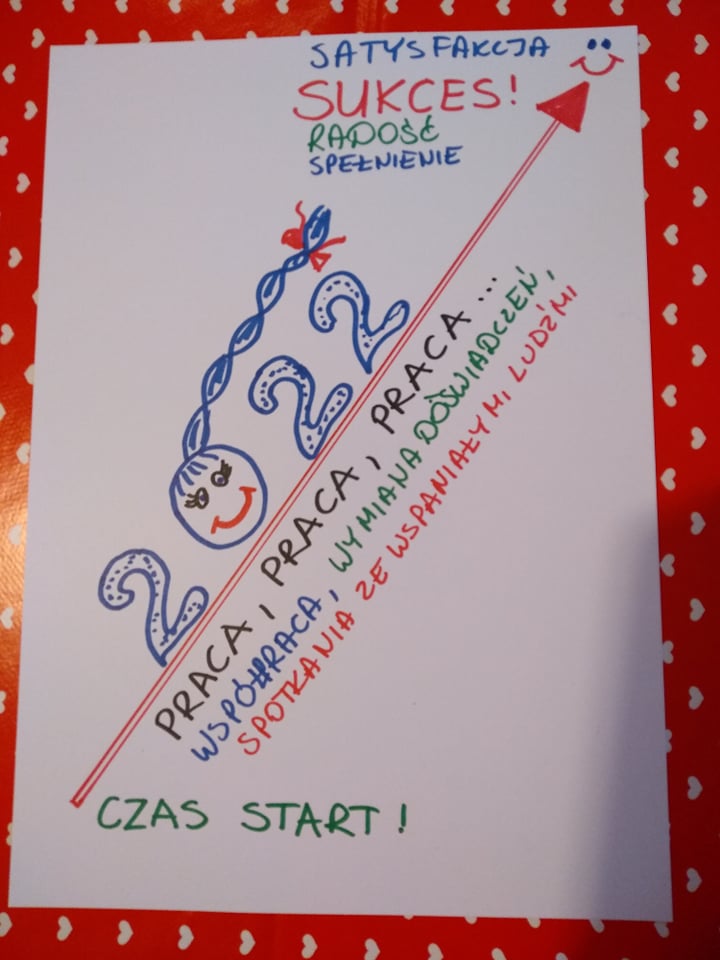 SATYSFAKCJA
SUKCES!
RADOŚĆ
SPEŁNIENIE
2022
PRACA, PRACA, PRACA...
WSPÓŁPRACA, WYMIANA DOŚWIADCZEŃ,
SPOTKANIA ZE WSPANIAŁYMI LUDŹMI
CZAS START!